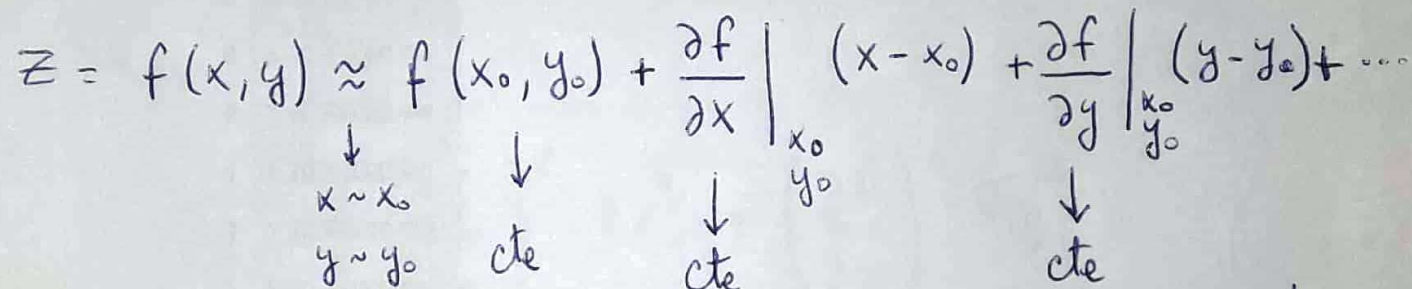 Z = f(x,y) ≈ f(x₀,y₀) + ∂f/∂x |x₀ y₀ (x-x₀) + ∂f/∂y |x₀ y₀ (y-y₀)+ ...
↓ ↓ ↓ ↓
x ~ x₀
y ~ y₀ cte cte cte